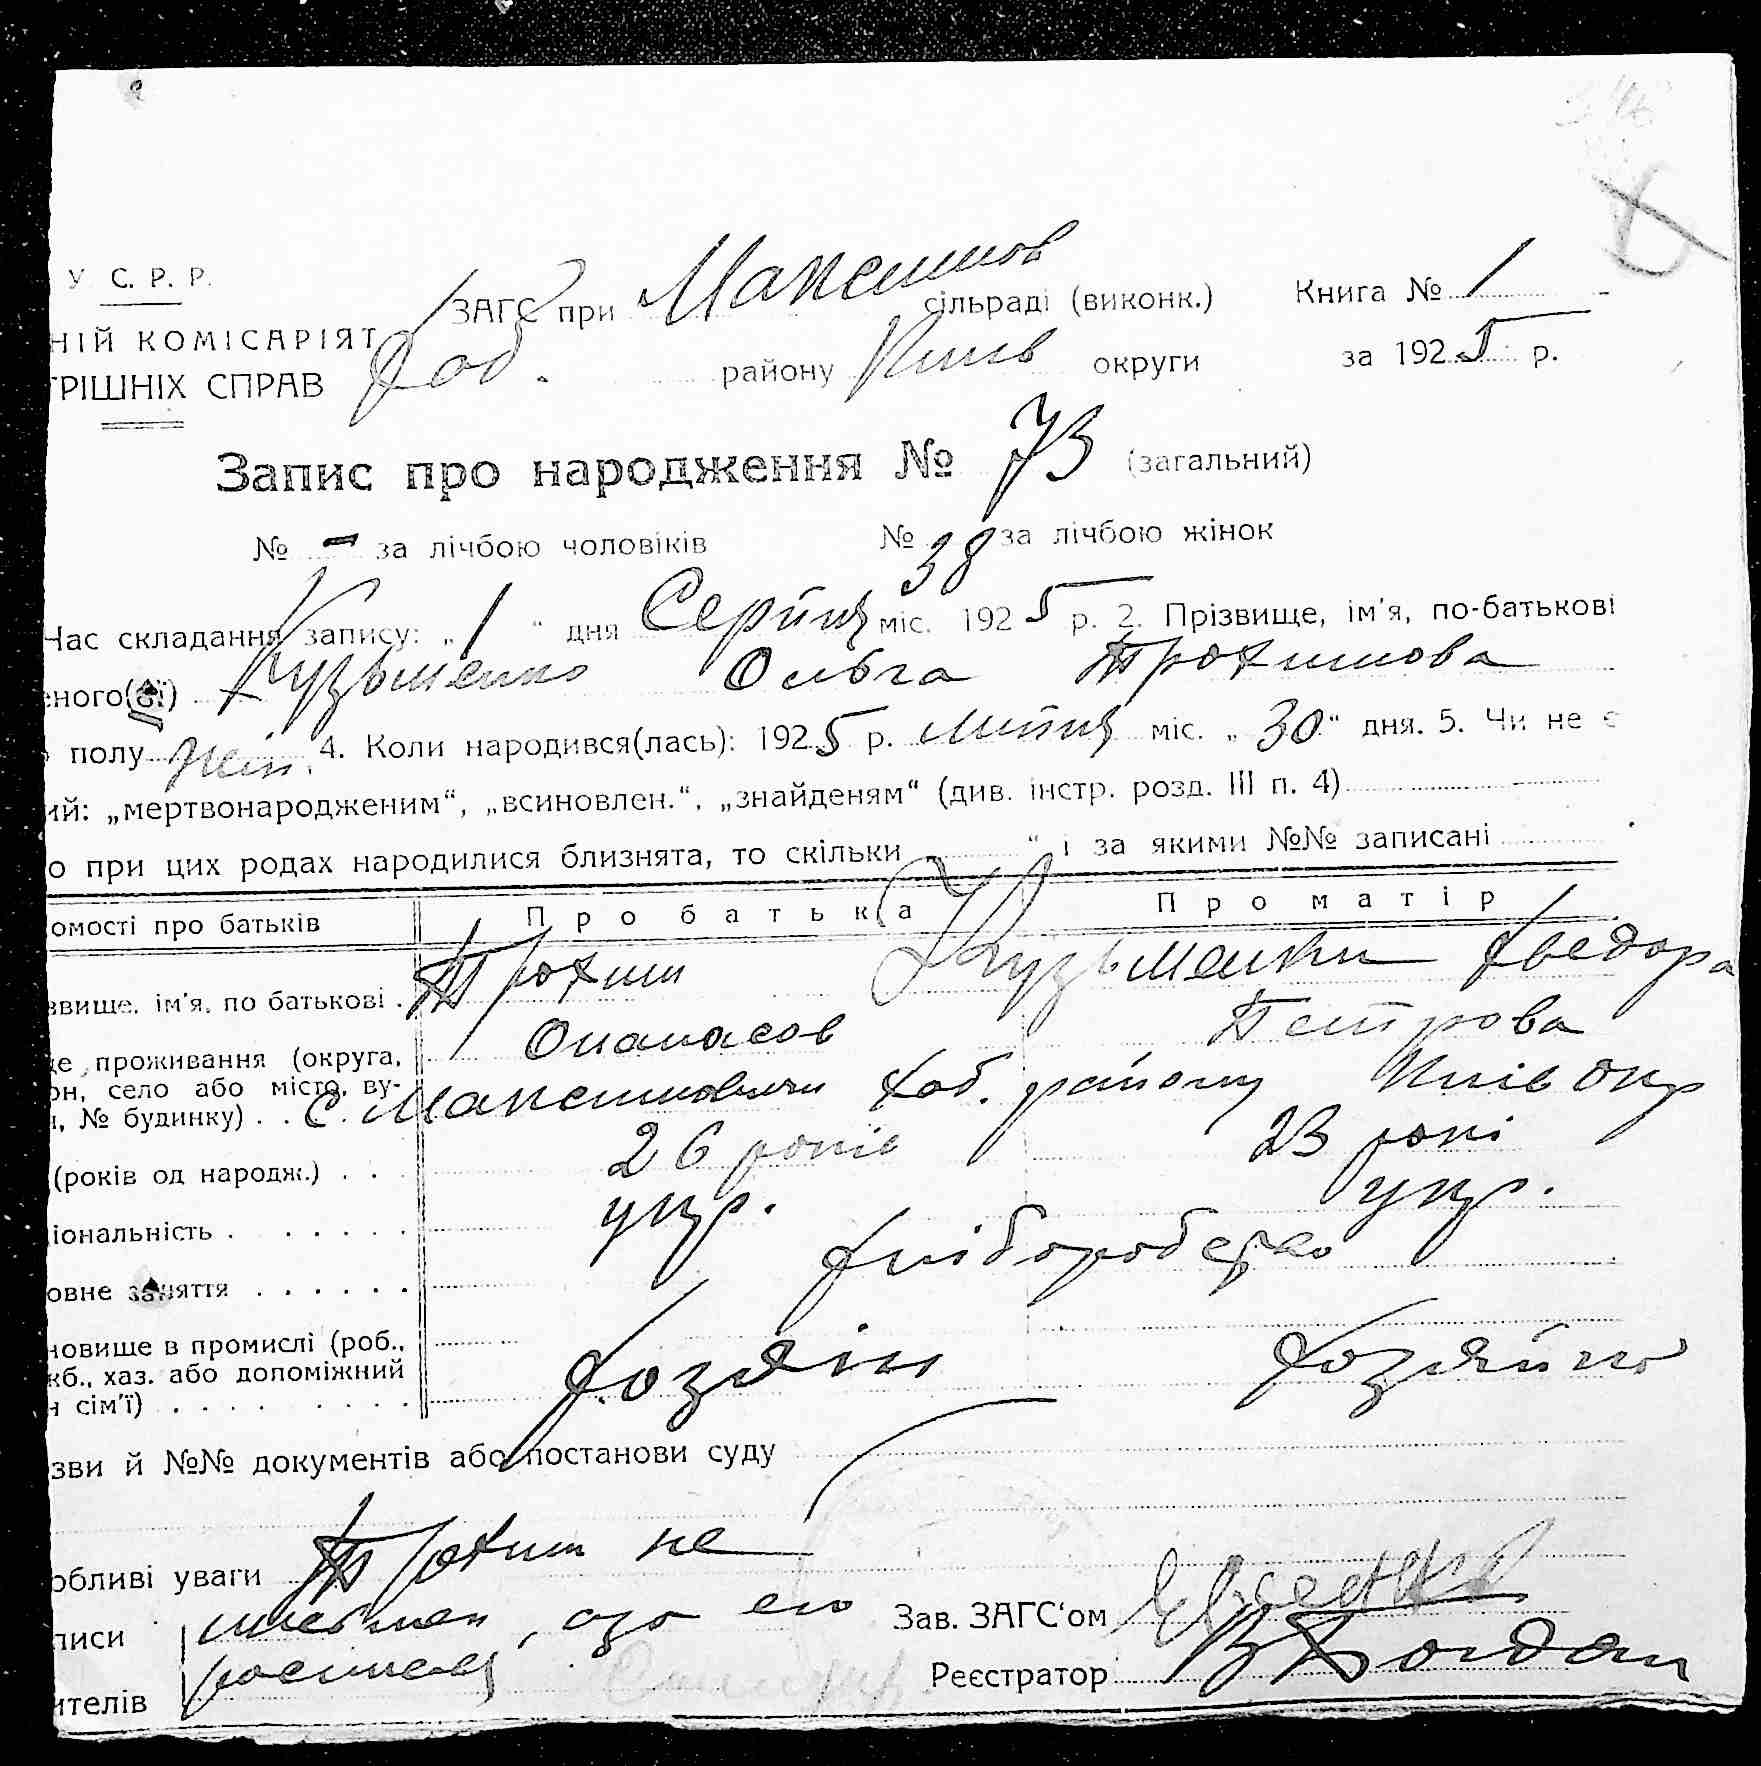 У С. Р. Р.
ЗАГС при Максимов сільраді (виконк.) Книга № 1
НІЙ КОМІСАРІЯТ
ТРІШНІХ СПРАВ Хаб. району Київ округи за 1925 р.
Запис про народження № 73 (загальний)
№ - за лічбою чоловіків № 38 за лічбою жінок
Час складання запису: „1“ дня Серпня міс. 1925 р. 2. Прізвище, ім'я, по-батькові
еного(ої) Кузьменко Ольга Трохимова
полу жін. 4. Коли народився(лась): 1925 р. липня міс. „30“ дня. 5. Чи не є
ий: „мертвонародженим“, „всиновлен.“, „знайденям“ (див. інстр. розд. III п. 4)
о при цих родах народилися близнята, то скільки “ і за якими №№ записані
омості про батьків Про батька Про матір
Трохим Кузьменки Хведора
звище, ім'я, по батькові
Опанасов Петрова
це проживання (округа,
он, село або місто, ву-
, № будинку) . . С. Максимовичи Хаб. району Київ окр
(років од народж.) . . 26 років 23 років
ціональність . . . . . . укр. укр.
овне заняття . . . . . . Хліборобство
новище в промислі (роб.,
жб., хаз. або допоміжний Хозяін Хозяйка
н сім'ї) . . . . . . . . .
зви й №№ документів або постанови суду
обливі уваги Трохим не
писи , що его Зав. ЗАГС'ом
ителів росписався Реєстратор В Богдан